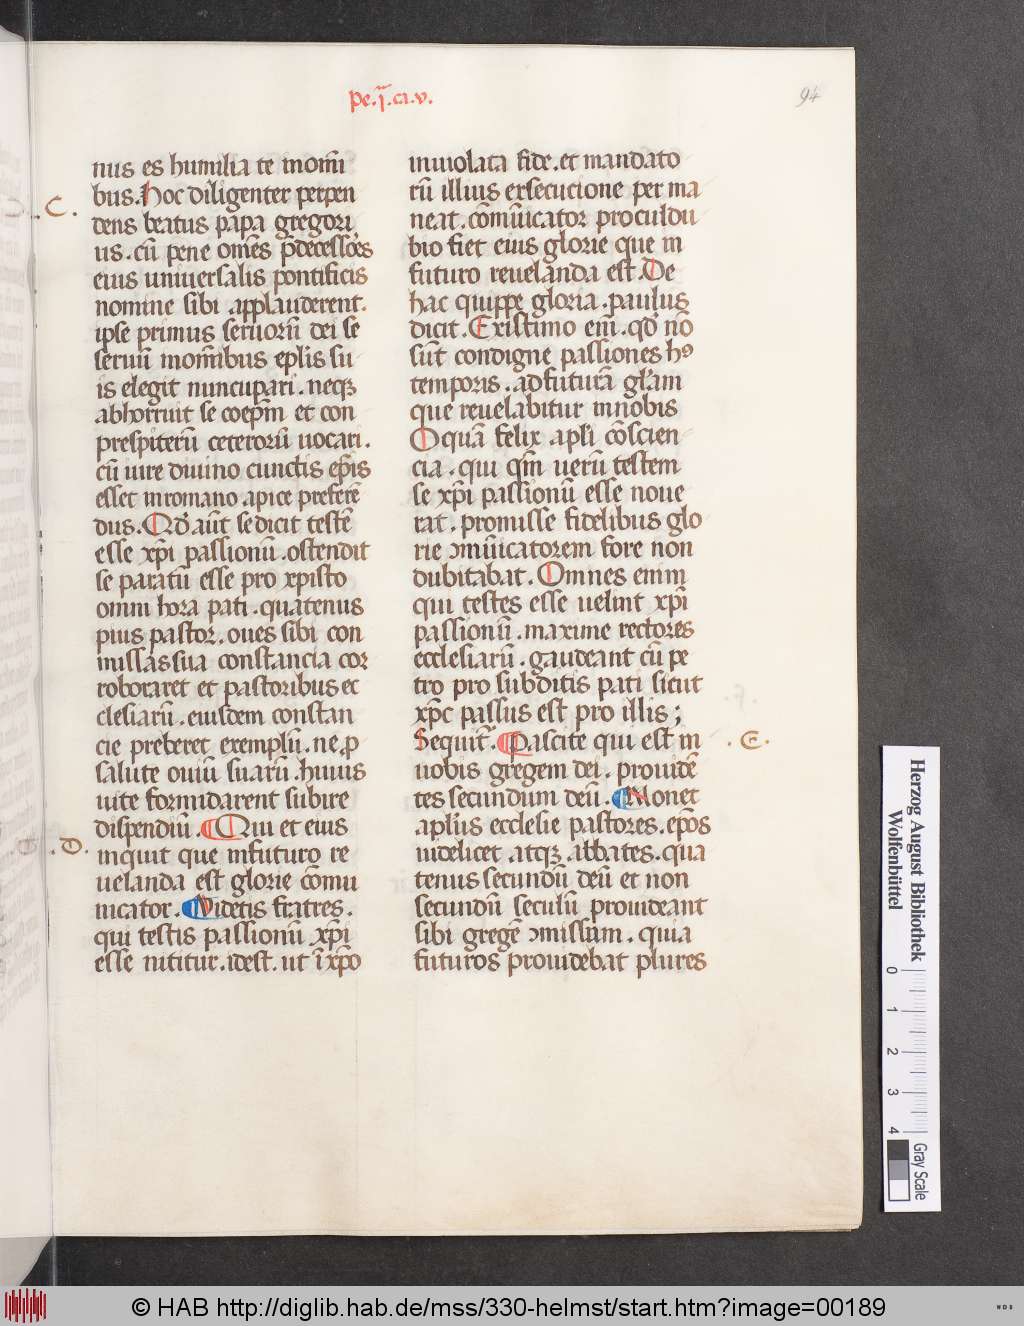 pe.ı̃.ca.v.
94
nus es humilia te in om̄i
bus. hoc diligenter perpen
dens beatus papa gregori
us. cū pene om̄es p̄decessōes
eius universalis pontificis
nomine sibi applauderent.
ipse primus servorū dei se
servū in om̄ibus ep̄lis su
is elegit nuncupari. neqȝ
abhorruit se coep̄m et con
prespiterū ceterorū vocari.
cū iure divino cunctis ep̄is
esset in romano apice preferē
dus. Qd̄ aūt se dicit testē
esse xp̄i passionū. ostendit
se paratū esse pro xpisto
omni hora pati. quatenus
pius pastor. oves sibi con
missas sua constancia cor
roboraret et pastoribus ec
clesiarū. eiusdem constan
cie preberet exemplū. ne ꝓ
salute oviū suarū. huius
vite formidarent subire
dispendiū. Qui et eius
inquit que in futuro re
velanda est glorie cōmu
nicator. Videtis fratres.
qui testis passionū xp̄i
esse nititur. idest. ut ī xp̄o
.C.
.D.
inviolata fide. et mandato
rū illius exsecucione perma
neat. cōmūicator procul du
bio fiet eius glorie que in
futuro revelanda est. De
hac quippe gloria. paulus
dicit. Existimo eni̅. qd̄ nō
sūt condigne passiones hꝰ
temporis. ad futurā gl̄am
que revelabitur in nobis
O quā felix apl̄i cōscien
cia. qui qm̄ verū testem
se xp̄i passionū esse nove
rat. promisse fidelibus glo
rie ꝯmūicatorem fore non
dubitabat. Omnes enim
qui testes esse velint xp̄i
passionū. maxime rectores
ecclesiarū. gaudeant cū pe
tro pro subditis pati sicut
xp̄c passus est pro illis;
Sequit̄. Pascite qui est in
vobis gregem dei. providē
tes secundum deū. Monet
apl̄us ecclesie pastores. ep̄os
videlicet atqȝ abbates. qua
tenus secundū deū et non
secundū seculū provideant
sibi gregē ꝯmissum. quia
futuros providebat plures
.E.
Herzog August Bibliothek
Wolfenbüttel
0 1 2 3 4
Gray Scale
© HAB http://diglib.hab.de/mss/330-helmst/start.htm?image=00189